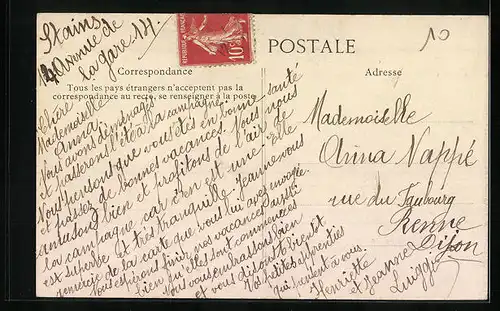 Stains
40 Avenue de
la gare 40
10
POSTALE
Correspondance
Adresse
Tous les pays étrangers n'acceptent pas la
correspondance au recto, se renseigner à la poste
Chère
Mademoiselle
Anna
Nous avons déménagés
et passerons l'été à la campagne
Nous pensons que vous êtes en bonne santé
et passez de bonnes vacances. Nous nous
amusons bien et profitons de l'air de
la campagne car c'en est une Elle
est superbe et très tranquille. Jeanne vous
remercie de la carte que vous lui avez envoyée.
Nous espérons finir nos vacances aussi
bien qu'elles sont commencées
Nous vous embrassons bien
et vous disons à bientôt
Vos petites apprenties
qui pensent à vous.
Henriette
et Jeanne
Luiggi
Mademoiselle
Anna Nappé
rue du Faubourg
Renne
Dijon